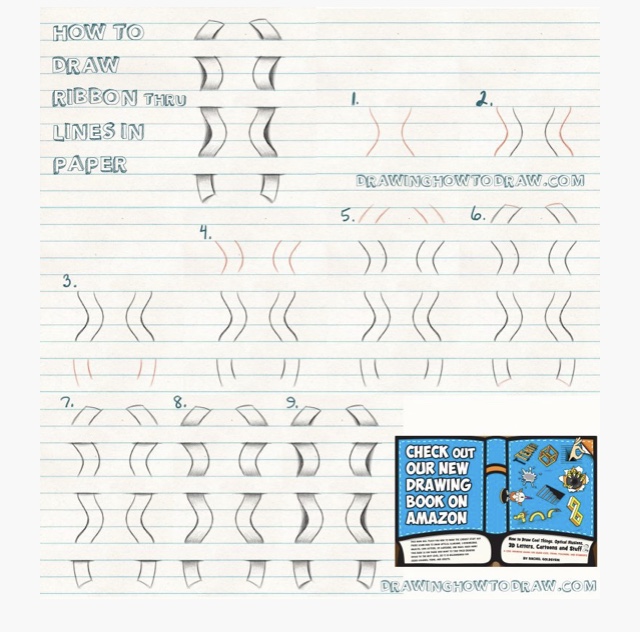 HOW TO
DRAW
RIBBON THRU
LINES IN
PAPER
1.
2.
DRAWINGHOWTODRAW.COM
3.
4.
5.
6.
7.
8.
9.
CHECK OUT
OUR NEW
DRAWING
BOOK ON
AMAZON
How to Draw Cool Things, Optical Illusions,
3D Letters, Cartoons and Stuff
BY RACHEL GOLDSTEIN
DRAWINGHOWTODRAW.COM